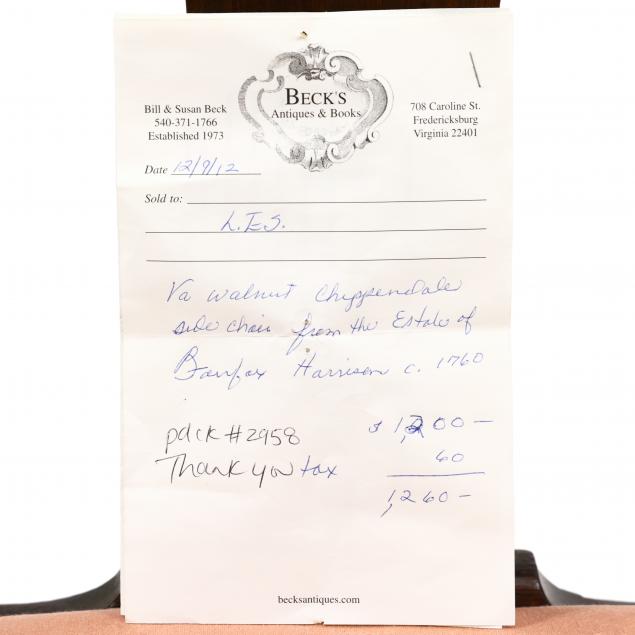 BECK'S
Antiques & Books
Bill & Susan Beck
540-371-1766
Established 1973
708 Caroline St.
Fredericksburg
Virginia 22401
Date 12/9/12
Sold to:
L.E.S.
Va walnut Chippendale
side chair from the Estate of
Fairfax Harrison c. 1760
pd ck #2958
Thank you
$ 1,200 —
tax 60
1,260 —
becksantiques.com